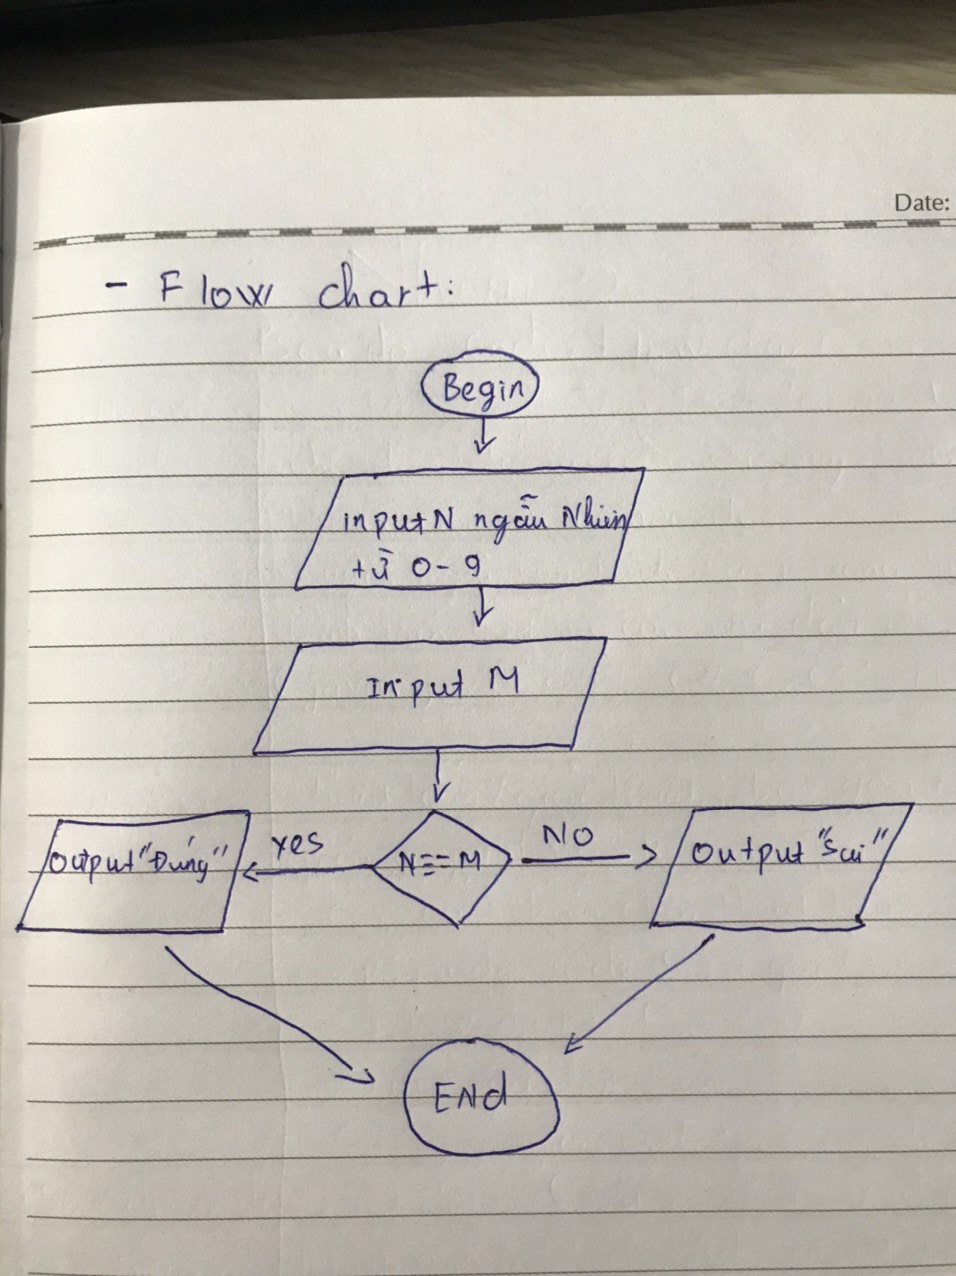 Date:
- Flow chart:
Begin
input N ngẫu Nhiên
từ 0-9
Input M
Yes
NO
Output "Đúng"
N == M
Output "Sai"
End